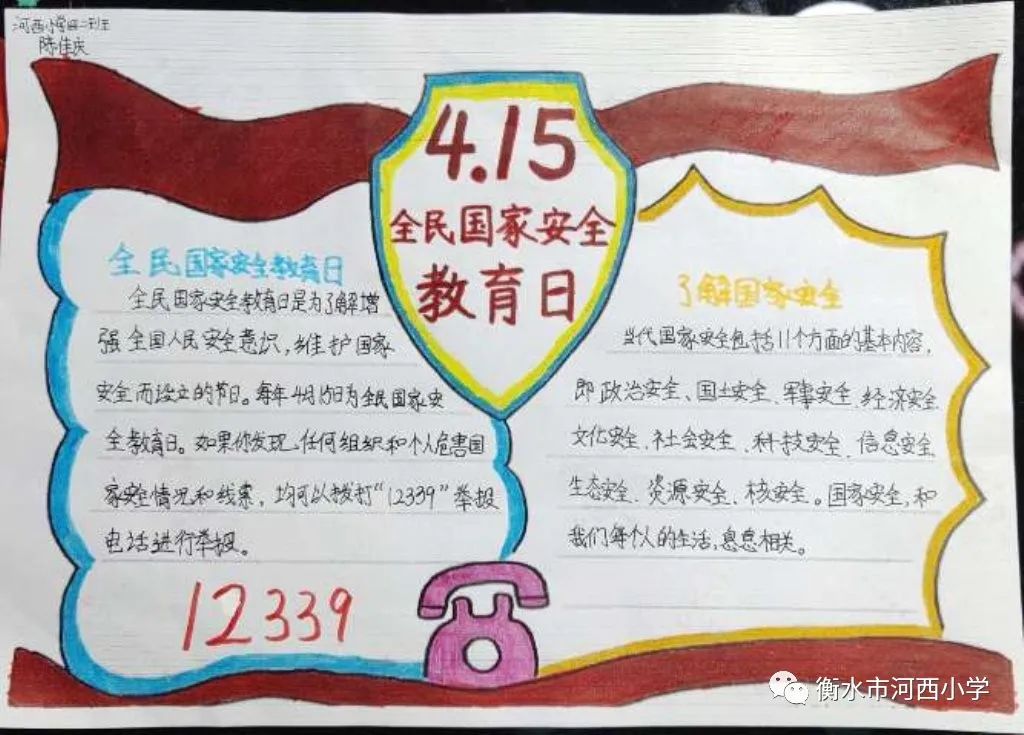 河西小学四二班
陈佳庆
4.15
全民国家安全
教育日
全民国家安全教育日
全民国家安全教育日是为了解增
强全国人民安全意识，维护国家
安全而设立的节日。每年4月15日为全民国家安
全教育日。如果你发现，任何组织和个人危害国
家安全情况和线索，均可以拨打“12339”举报
电话进行举报。
12339
了解国家安全
当代国家安全包括11个方面的基本内容，
即政治安全、国土安全、军事安全、经济安全
文化安全、社会安全、科技安全、信息安全
生态安全、资源安全、核安全。国家安全，和
我们每个人的生活，息息相关。
衡水市河西小学